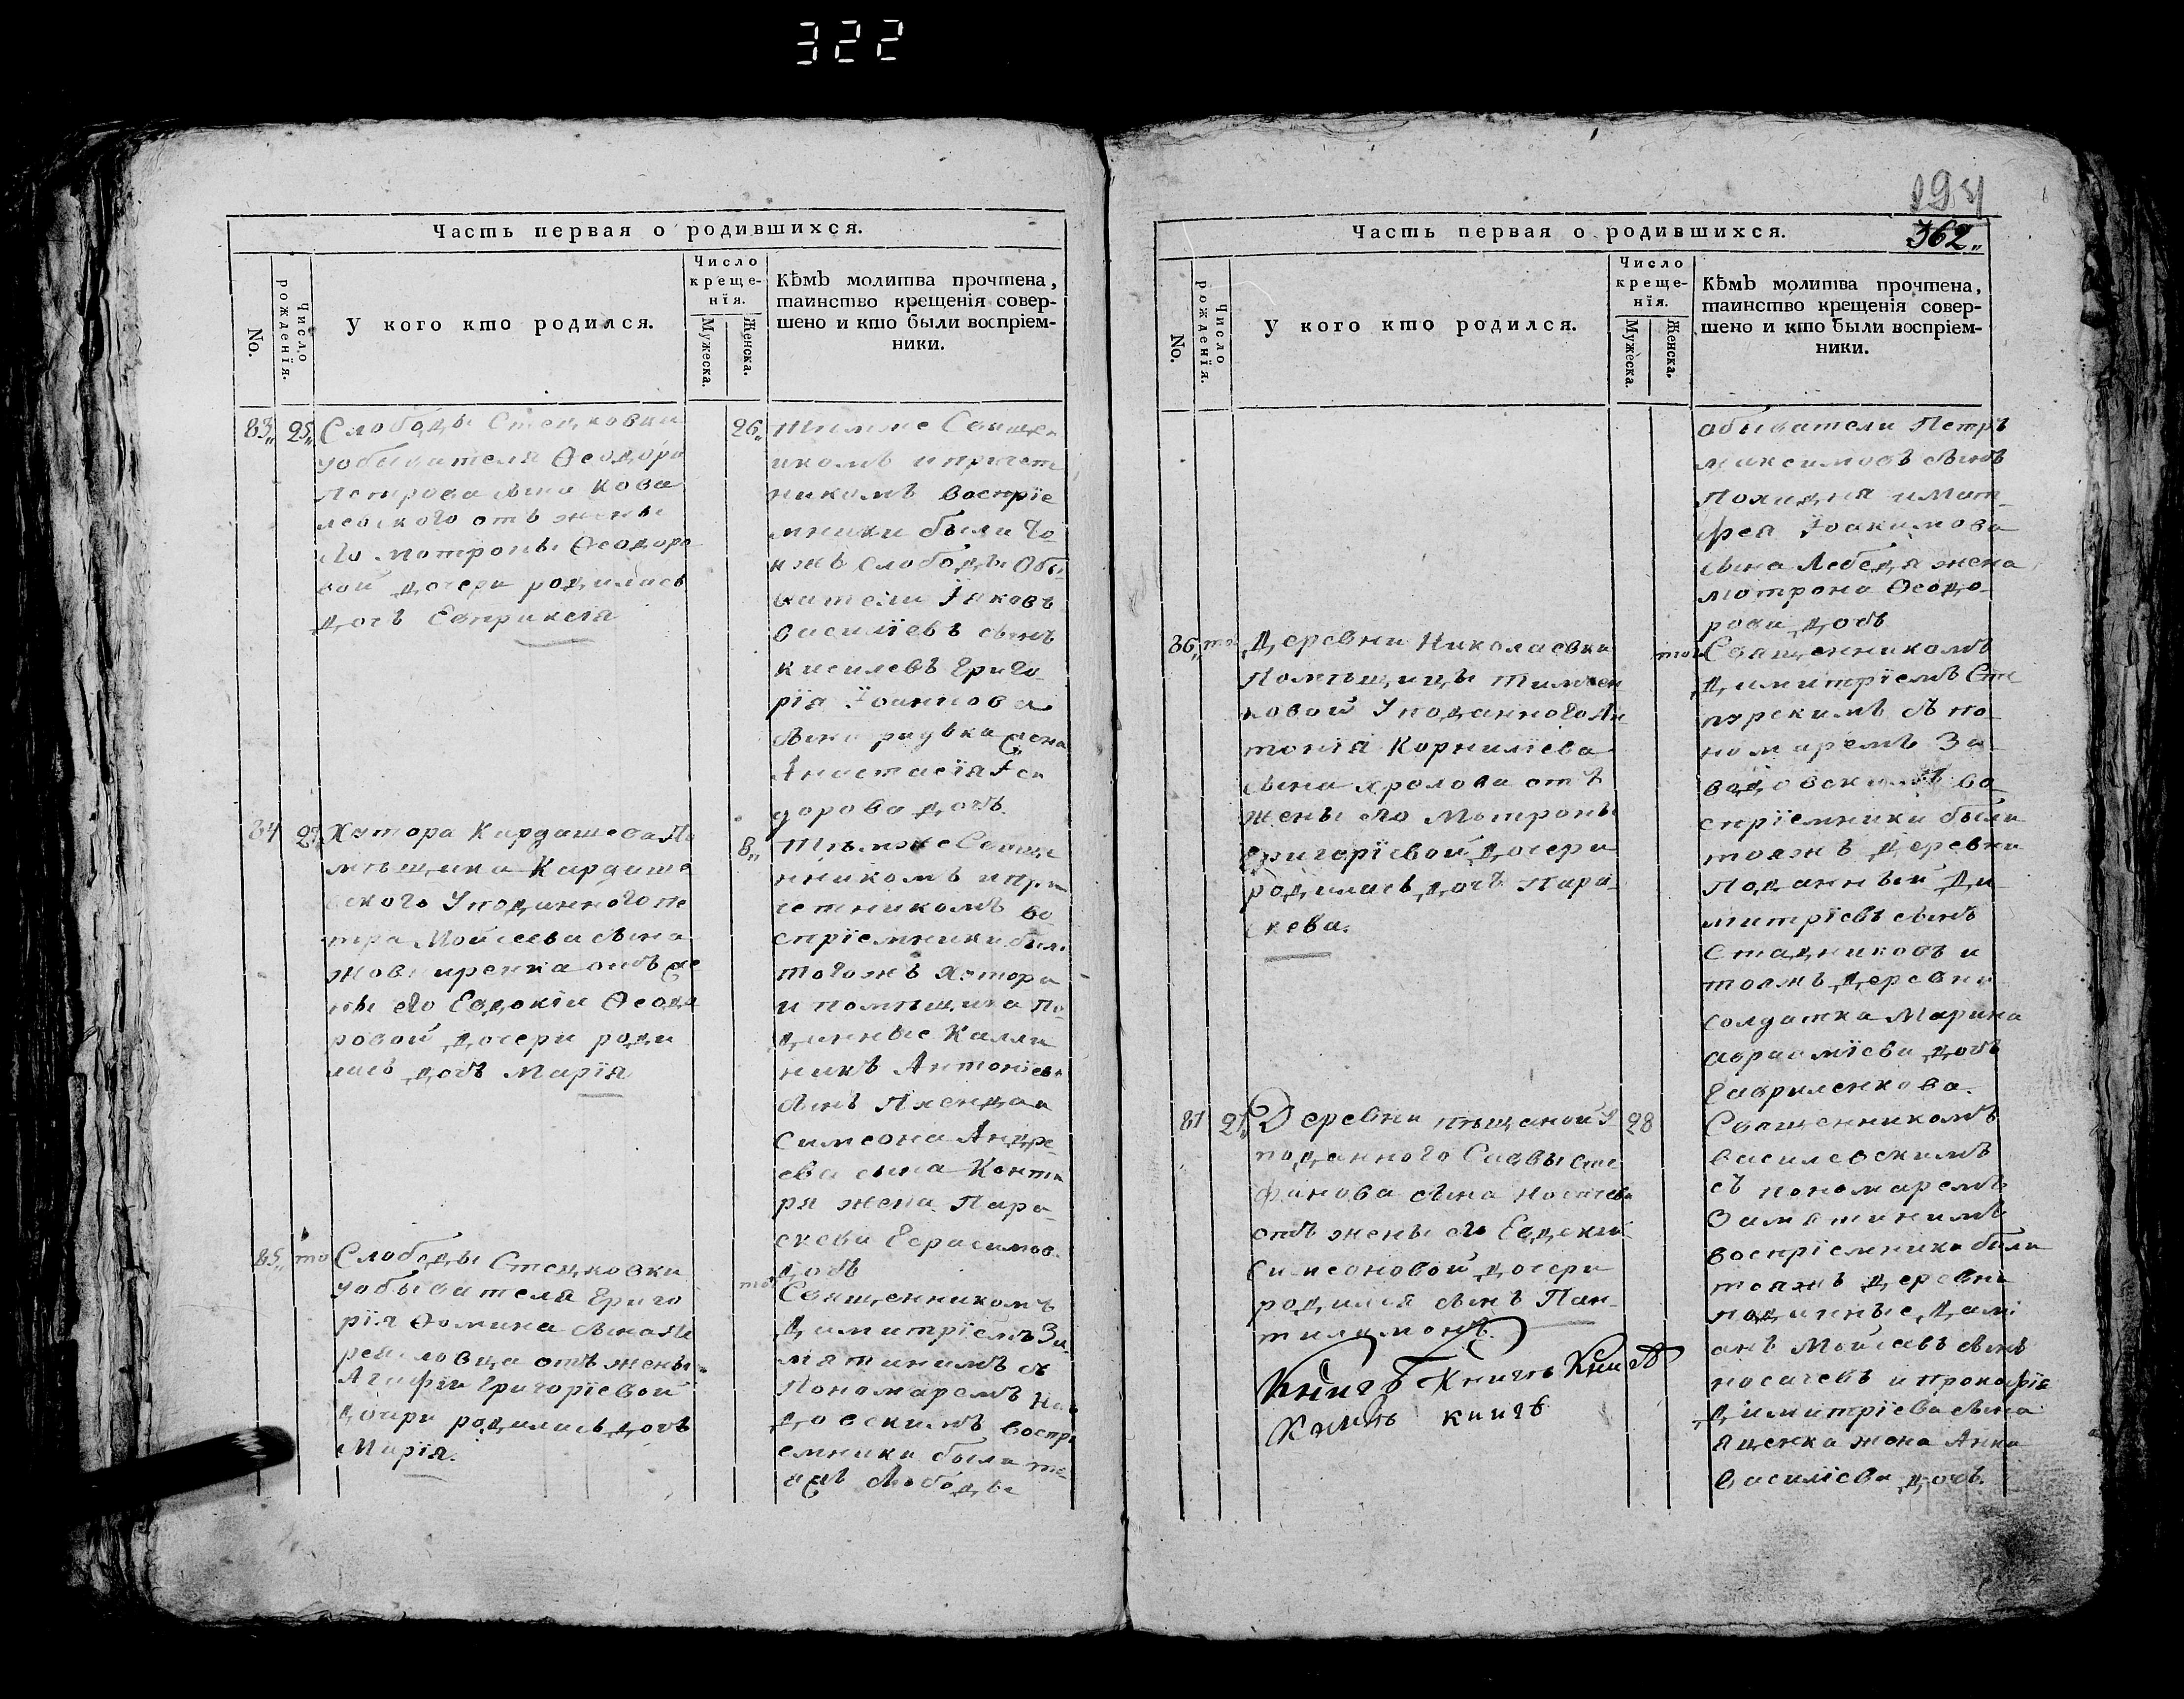 322
Часть первая о родившихся.
No.
Число рожденїя.
У кого кто родился.
Число крещенїя.
Мужеска.
Женска.
Кѣмъ молитва прочтена,
таинство крещенїя совер-
шено и кто были воспріем-
ники.
83„ 25„ Слободы Стецковки
уобывателя Ѳеодора
Петрова сына Кова
левского отъ жены
его Мотроны Ѳеодоро
вой дочери родилась
дочь Евпраксїя
26„
Тѣмже Священ
никомъ и причет
никомъ воспрїе
мники были То
яжъ слободы Обы
ватели Іаковъ
Василїевъ сынъ
Киселевъ Григо
рїя Їоаннова
сына жена
Анастасїя
дорова дочь.
84 27 Хутора Кардашева По
мѣщика Кардаше
вского Уподанного Пе
тра Мойсеева сына
отъ же
ны его Евдокїи Ѳеодо
ровой дочери роди
лась дочь Марїя
8„
Тѣмже Свяще
нникомъ и при
четникомъ во
спрїемники были
тогожъ хутора
и помѣщика по
данные Калли
никъ Антонїевъ
сынъ
Симеона Андре
ева сына
ря жена Пара
скева Герасимов.
дочь
85„ то Слободы Стецковки
уобывателя Григо
рїя Ѳомина сына
отъ жены
Агафїи Григорїевой
дочери родилась дочь
Марїя.
тог
Священникомъ
Димитрїемъ За
мятинимъ съ
Пономаремъ
воспрї
емники были то
яжъ слободы
194
362„
Часть первая о родившихся.
No.
Число рожденїя.
У кого кто родился.
Число крещенїя.
Мужеска.
Женска.
Кѣмъ молитва прочтена,
таинство крещенїя совер-
шено и кто были воспріем-
ники.
обыватели Петръ
Максимовъ сынъ
и Мат
фея Їоакимова
сына Лебедя жена
Мотрона Ѳеодо
рова дочь
86„ то Деревни Николаевки
Помѣщицы Тимчен
ковой Уподанного Ан
тонїя Корнилїева
сына Хролова отъ
жены его Мотроны
Григорїевой дочери
родилась дочь Пара
скева.
тог
Священникомъ
Димитрїемъ Сте
пурскимъ съ по
номаремъ За
водовскимъ во
спрїемники были
тояжъ деревни
Поданный Ди
митрїевъ сынъ
Стадниковъ и
тояжъ деревни
солдатка Марина
Авраамїева дочь
Гавриленкова.
87 27„ Деревни Пѣщаной У
поданного Саввы Сте
фанова сына Носачева
отъ жены его Евдокїи
Симеоновой дочери
родился сынъ Пан
тилимонъ.
28
Священникомъ
Василевскимъ
съ пономаремъ
Замятинимъ
воспрїемники были
тояжъ деревни
поданные Дамї
анъ Мойсевъ сынъ
Носачевъ и Прокофїя
Димитрїева сына
Яценка жена Анна
Василїева дочь.
Книгъ Книгъ Книгъ
Книгъ книгъ